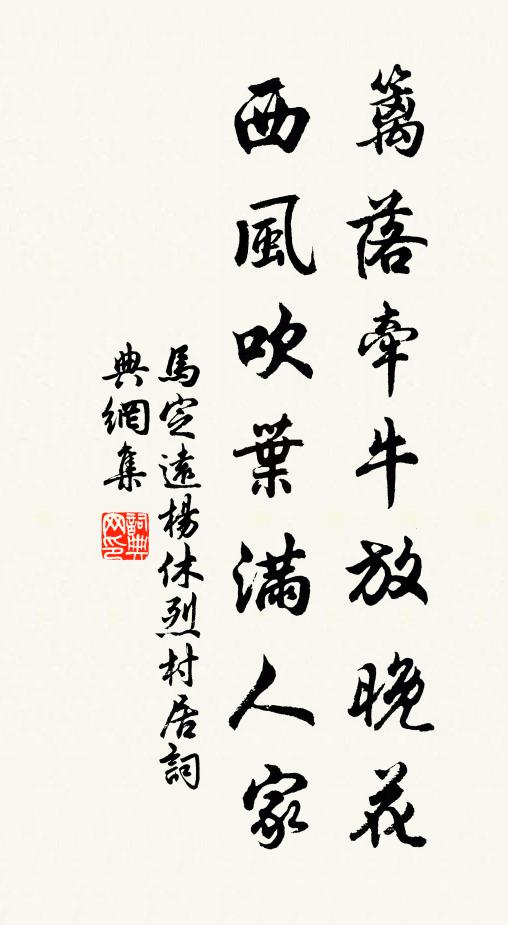 籬落牽牛放晚花
西風吹葉滿人家
馬定遠楊休烈村居詞
典網集
詞典網印